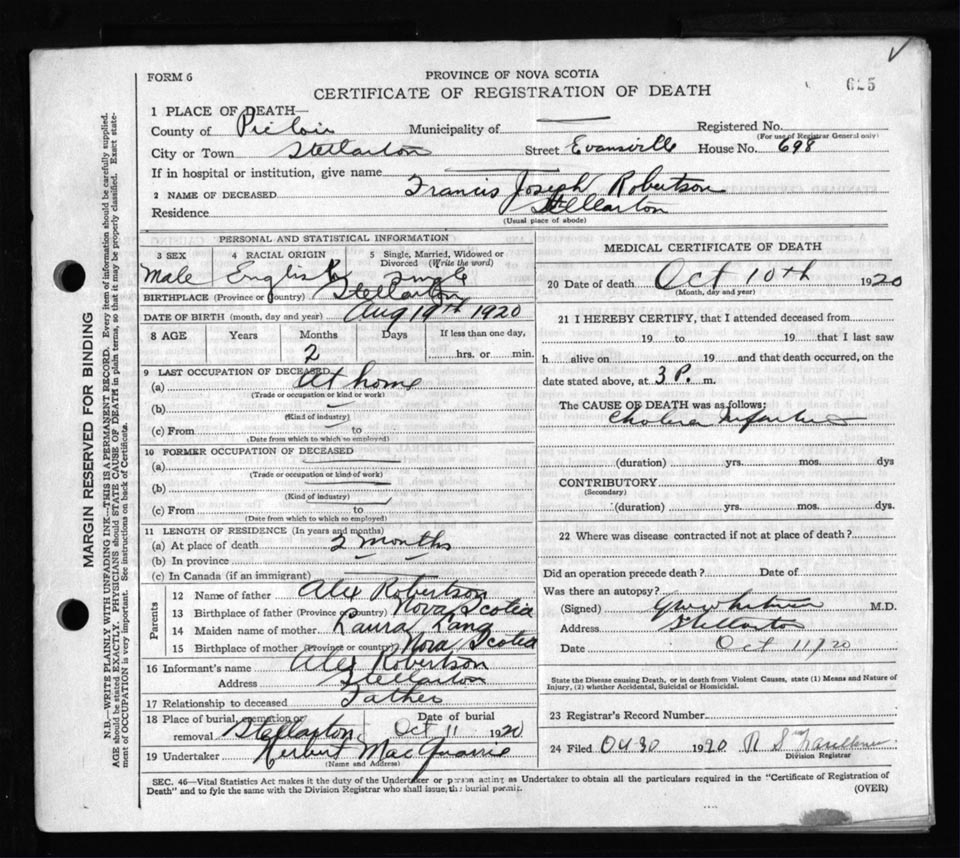 FORM 6
PROVINCE OF NOVA SCOTIA
CERTIFICATE OF REGISTRATION OF DEATH
625
1 PLACE OF DEATH—
County of Pictou Municipality of Registered No.
(For use of Registrar General only)
City or Town Stellarton Street Evansville House No. 698
If in hospital or institution, give name
2 NAME OF DECEASED Francis Joseph Robertson
Residence Stellarton
(Usual place of abode)
PERSONAL AND STATISTICAL INFORMATION
3 SEX 4 RACIAL ORIGIN 5 Single, Married, Widowed or Divorced (Write the word)
Male English Single
BIRTHPLACE (Province or country) Stellarton
DATE OF BIRTH (month, day and year) Aug 19th 1920
8 AGE Years Months Days If less than one day,
2 hrs. or min.
9 LAST OCCUPATION OF DECEASED
(a) At home
(Trade or occupation or kind or work)
(b)
(Kind of industry)
(c) From to
(Date from which to which so employed)
10 FORMER OCCUPATION OF DECEASED
(a)
(Trade or occupation or kind of work)
(b)
(Kind of industry)
(c) From to
(Date from which to which so employed)
11 LENGTH OF RESIDENCE (In years and months)
(a) At place of death 2 months
(b) In province
(c) In Canada (if an immigrant)
Parents
12 Name of father Alex Robertson
13 Birthplace of father (Province or country) Nova Scotia
14 Maiden name of mother Laura Lang
15 Birthplace of mother (Province or country) Nova Scotia
16 Informant's name Alex Robertson
Address Stellarton
17 Relationship to deceased Father
18 Place of burial, cremation or removal Stellarton Date of burial Oct 11 1920
19 Undertaker Herbert MacQuarrie
(Name and Address)
MEDICAL CERTIFICATE OF DEATH
20 Date of death Oct 10th 1920
(Month, day and year)
21 I HEREBY CERTIFY, that I attended deceased from
19 to 19 that I last saw
h alive on 19 and that death occurred, on the
date stated above, at 3 P. m.
The CAUSE OF DEATH was as follows:
Cholera Infantum
(duration) yrs. mos. dys
CONTRIBUTORY
(Secondary)
(duration) yrs. mos. dys.
22 Where was disease contracted if not at place of death?
Did an operation precede death? Date of
Was there an autopsy?
(Signed) M.D.
Address Stellarton
Date Oct 11/20
State the Disease causing Death, or in death from Violent Causes, state (1) Means and Nature of
Injury, (2) whether Accidental, Suicidal or Homicidal.
23 Registrar's Record Number
24 Filed Oct 30 1920 R S
Division Registrar
SEC. 46—Vital Statistics Act makes it the duty of the Undertaker or person acting as Undertaker to obtain all the particulars required in the "Certificate of Registration of
Death" and to fyle the same with the Division Registrar who shall issue, the burial permit.
(OVER)
MARGIN RESERVED FOR BINDING
N.B.—WRITE PLAINLY WITH UNFADING INK—THIS IS A PERMANENT RECORD. Every item of information should be carefully supplied.
AGE should be stated EXACTLY. PHYSICIANS should STATE CAUSE OF DEATH in plain terms, so that it may be properly classified. Exact state-
ment of OCCUPATION is very important. See instructions on back of Certificate.